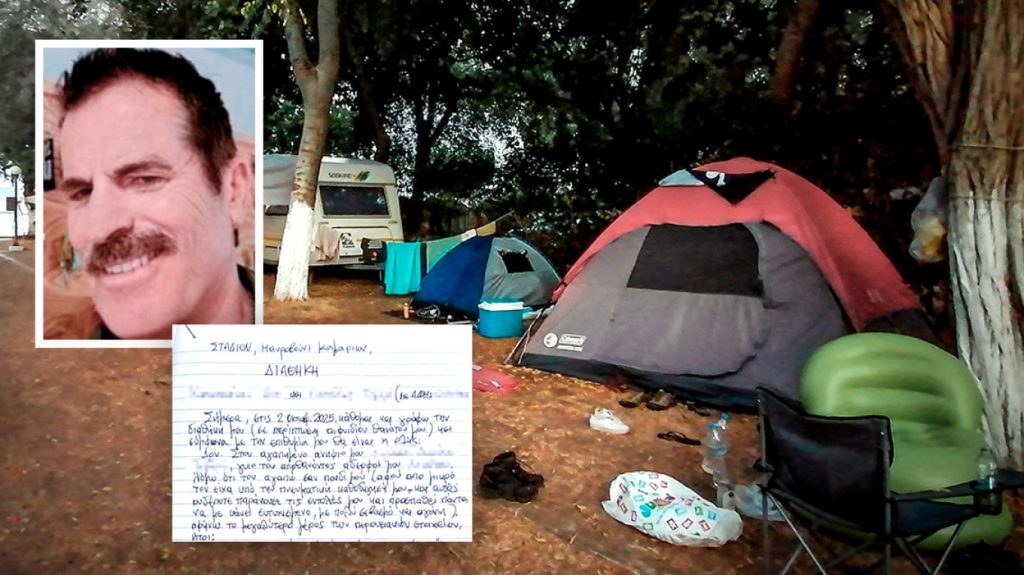 ΣΤΑΔΙΟΝ, Μαυροβούνι Καμαριων,
ΔΙΑΘΗΚΗ
και
Σήμερα, στις 2 Οκτωβ. 2025, κάθομαι και γράφω την
διαθήκη μου (σε περίπτωση αιφνιδίου θανάτου μου) και
σύμφωνα με την επιθυμία μου θα είναι η εξής:
1ον. Στον αγαπημένο ανιψιο μου
, γυιο του αποθανοντος αδερφού μου
Λόγω ότι τον αγαπώ σαν παιδί μου (αφού απο μικρό
τον είχα υπό την πνευματική καθοδήγησή μου, και αυτός
ουδέποτε παράκουσε τις εντολές μου και προσπαθεί πάντα
να με κάνει ευτυχισμένο, με πολύ σεβασμό και αγάπη)
αφήνω το μεγαλύτερο μέρος των περιουσιακών στοιχείων,
ήτοι:
Coleman